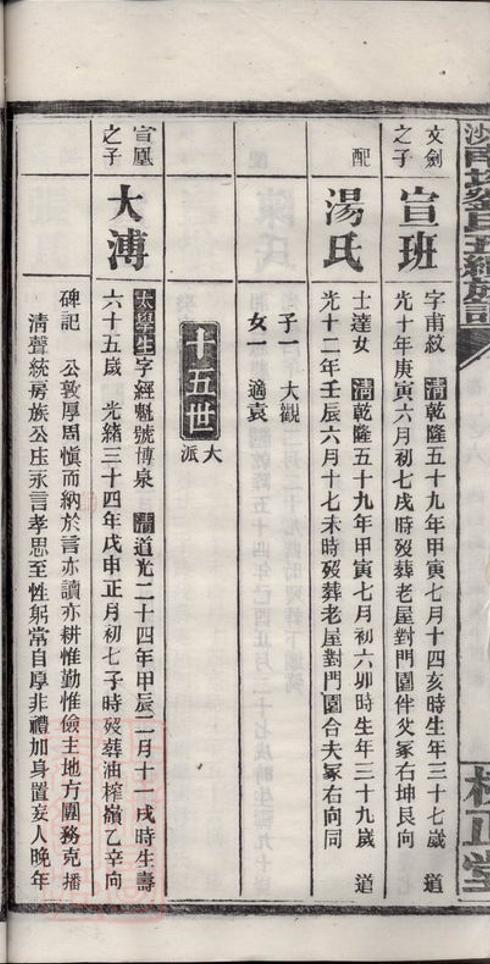 文劍之子
宣班
字甫紋　清乾隆五十九年甲寅七月十四亥時生年三十七歲　道
光十年庚寅六月初七戌時歿葬老屋對門園伴父冢右坤艮向
配
湯氏
士達女　清乾隆五十九年甲寅七月初六卯時生年三十九歲　道
光十二年壬辰六月十七未時歿葬老屋對門園合夫冢右向同
子一　大觀
女一　適袁
十五世
大派
宣鳳之子
大溥
太學生字經魁號博泉　清道光二十四年甲辰二月十一戌時生壽
六十五歲　光緒三十四年戊申正月初七子時歿葬油榨嶺乙辛向
碑記　公敦厚周慎而納於言亦讀亦耕惟勤惟儉主地方團務克播
清聲統房族公庄永言孝思至性躬常自厚非禮加身置妄人晚年